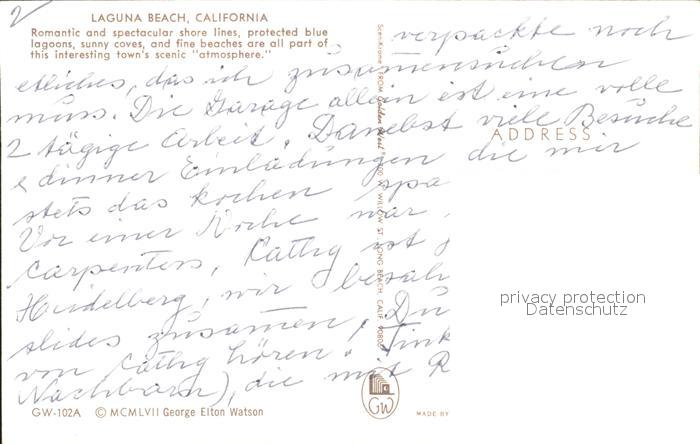 2
LAGUNA BEACH, CALIFORNIA
Romantic and spectacular shore lines, protected blue
lagoons, sunny coves, and fine beaches are all part of
this interesting town's scenic "atmosphere."
verpackte noch
etliches, das ich zusammensuchen
muss. Die Garage allein ist eine volle
2 tägige Arbeit. Danebst viele Besuche
& dinner Einladungen die mir
stets das kochen spa
Vor einer Woche war
Carpenters, Cathy ist
Heidelberg, wir besah
slides zusammen. Du
von Cathy hören.
Nachbarn), die mit R
ADDRESS
Scen-Krome FROM Golden West
WILLOW ST. LONG BEACH, CALIF. 90806
privacy protection
Datenschutz
GW
GW-102A © MCMLVII George Elton Watson
MADE BY